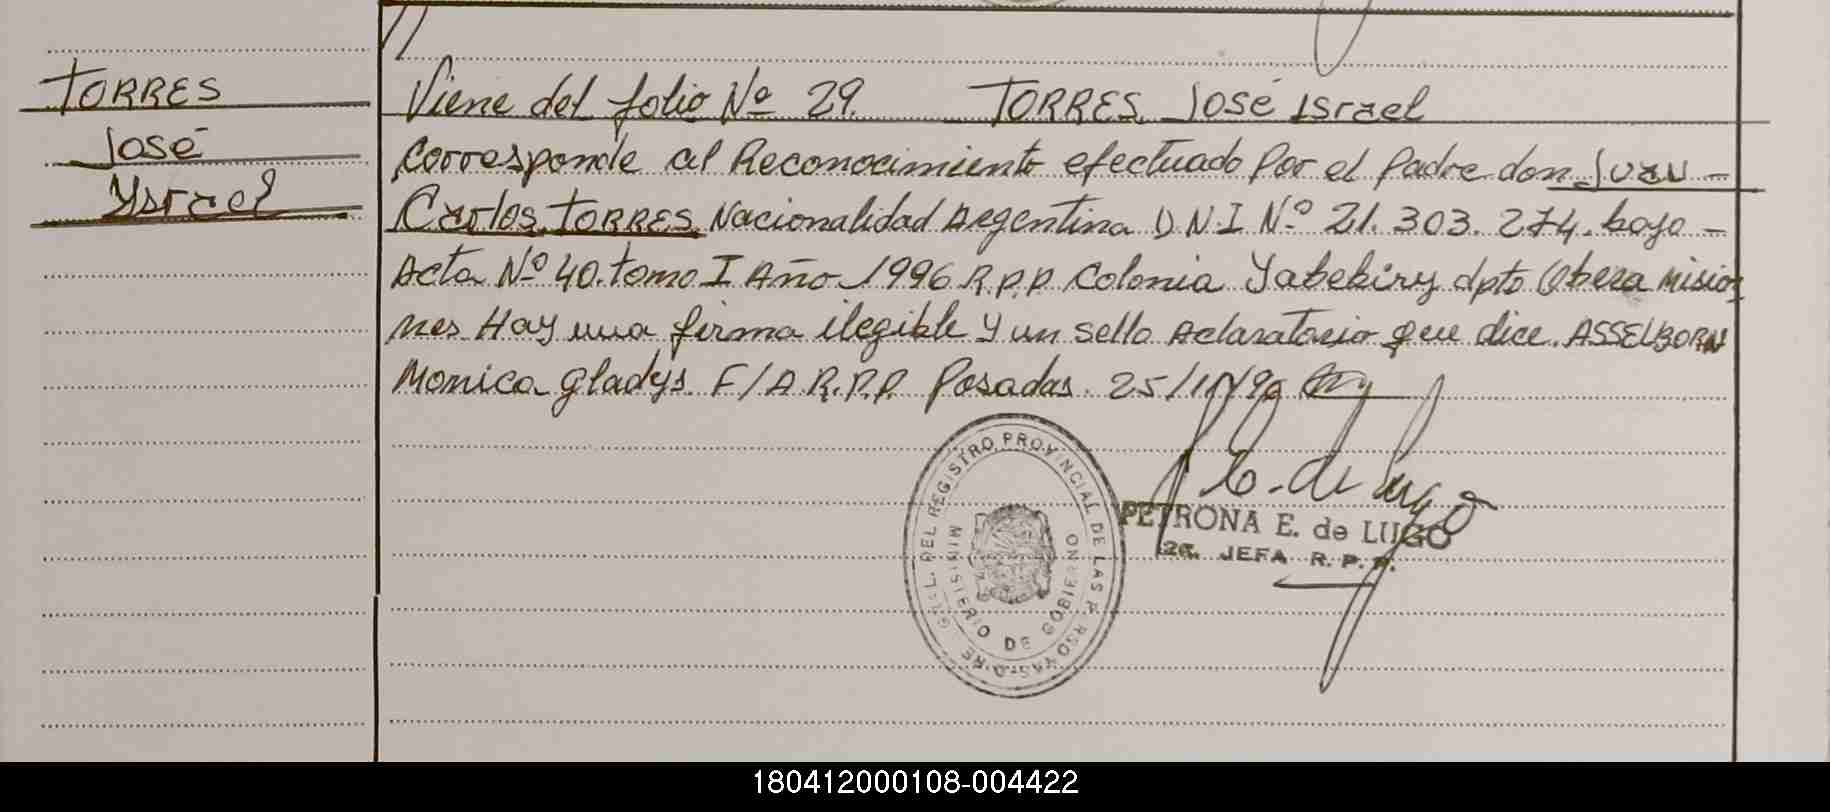 TORRES
José
Ysrael
Viene del folio Nº 29. TORRES José Israel
Corresponde al Reconocimiento efectuado Por el Padre don Juan -
Carlos TORRES Nacionalidad Argentina D.N.I Nº 21.303.274. bajo -
Acta Nº 40. tomo I Año 1996 R.P.P. Colonia Yabebiry dpto Obera Misio
nes Hay una firma ilegible y un sello Aclaratorio que dice. ASSELBORN
Monica Gladys F/A R.P.P. Posadas. 25/
PETRONA E. de LUGO
2a. JEFA R. P. P.
GRAL. DEL REGISTRO PROVINCIAL DE LAS
MINISTERIO DE GOBIERNO
180412000108-004422